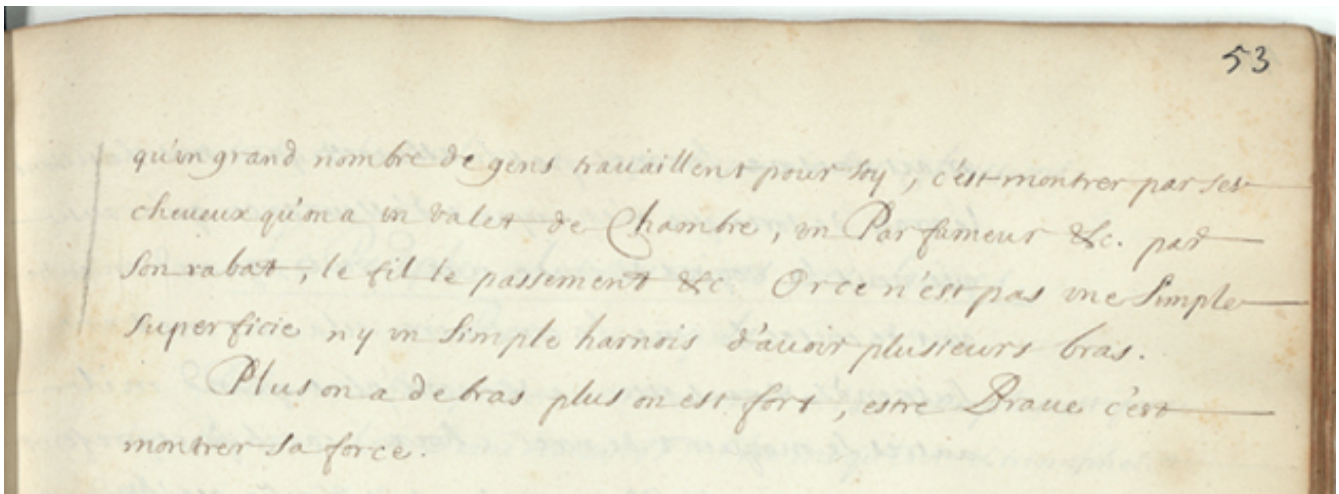 53
qu'un grand nombre de gens trauaillent pour soy, c'est montrer par ses
cheueux qu'on a un valet de Chambre, un Parfumeur &c. par
son rabat, le fil le passement &c. Or ce n'est pas une simple
superficie ny un simple harnois d'auoir plusieurs bras.
Plus on a de bras plus on est fort, estre Braue c'est
montrer sa force.